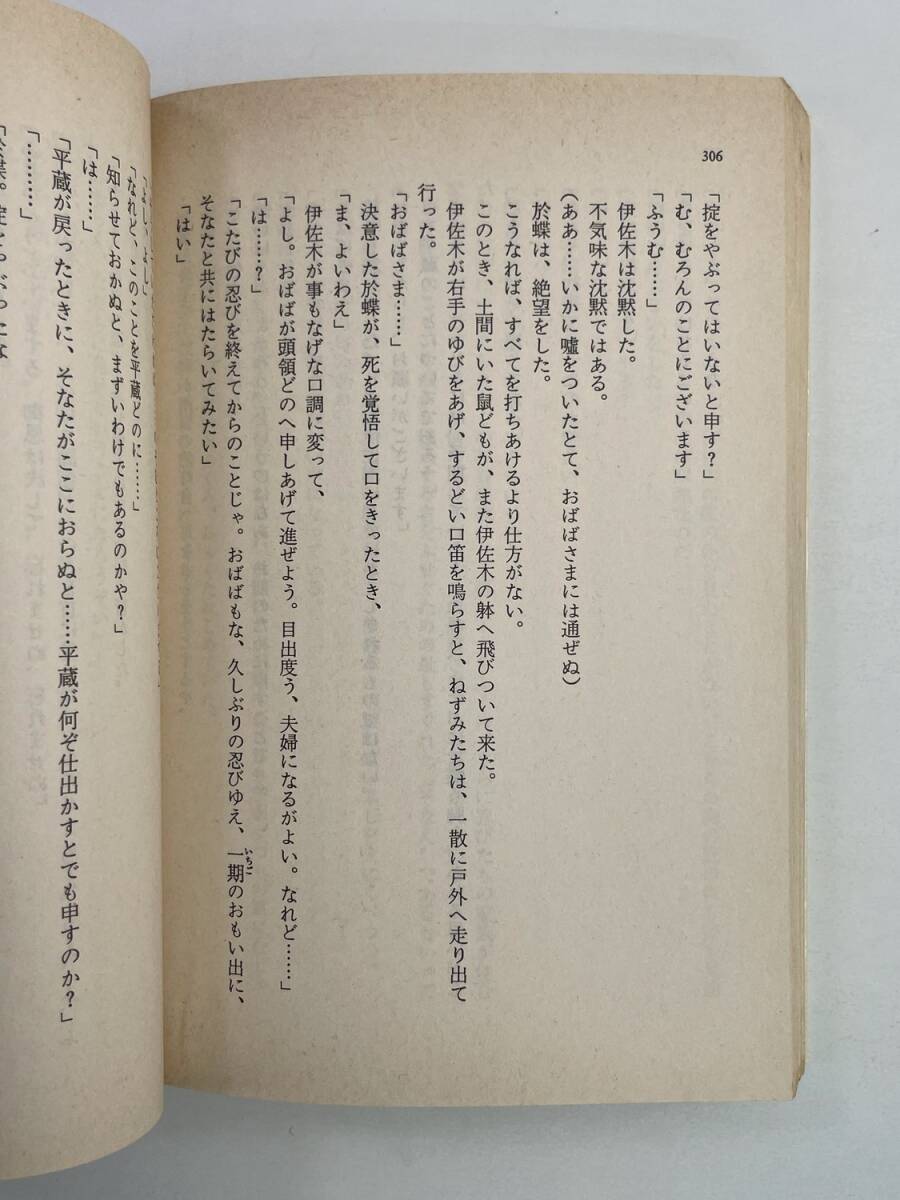 306
「掟をやぶってはいないと申す？」
「む、むろんのことにございます」
「ふうむ……」
伊佐木は沈黙した。
不気味な沈黙ではある。
（ああ……いかに嘘をついたとて、おばばさまには通ぜぬ）
於蝶は、絶望をした。
こうなれば、すべてを打ちあけるより仕方がない。
このとき、土間にいた鼠どもが、また伊佐木の躰へ飛びついて来た。
伊佐木が右手のゆびをあげ、するどい口笛を鳴らすと、ねずみたちは、一散に戸外へ走り出て
行った。
「おばばさま……」
決意した於蝶が、死を覚悟して口をきったとき、
「ま、よいわえ」
伊佐木が事もなげな口調に変って、
「よし。おばばが頭領どのへ申しあげて進ぜよう。目出度う、夫婦になるがよい。なれど……」
「は……？」
「こたびの忍びを終えてからのことじゃ。おばばもな、久しぶりの忍びゆえ、一期のおもい出に、
いちご
そなたと共にはたらいてみたい」
「はい」
「よし、よし」
「なれど、このことを平蔵どのに……」
「知らせておかぬと、まずいわけでもあるのかや？」
「は……」
「平蔵が戻ったときに、そなたがここにおらぬと……平蔵が何ぞ仕出かすとでも申すのか？」
「………」